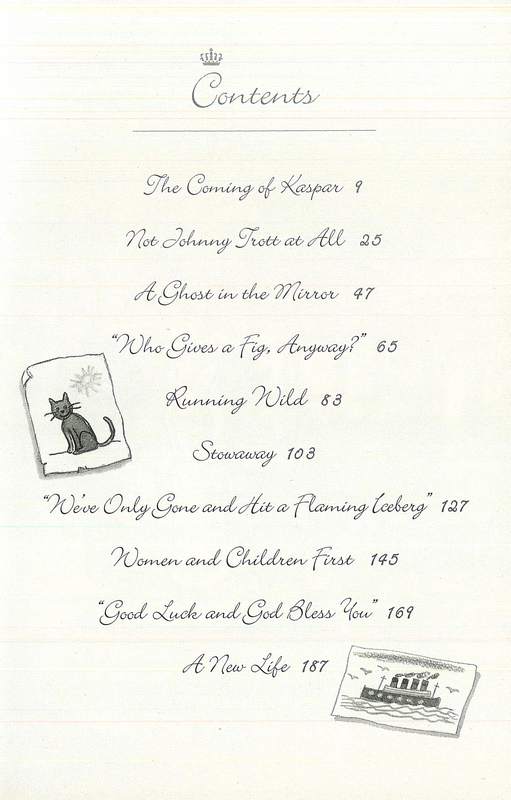 Contents
The Coming of Kaspar 9
Not Johnny Trott at All 25
A Ghost in the Mirror 47
“Who Gives a Fig, Anyway?” 65
Running Wild 83
Stowaway 103
“We’ve Only Gone and Hit a Flaming Iceberg” 127
Women and Children First 145
“Good Luck and God Bless You” 169
A New Life 187